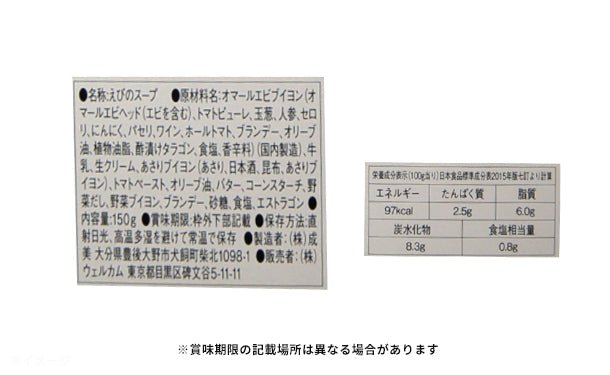 ●名称:えびのスープ ●原材料名:オマールエビブイヨン(オ
マールエビヘッド(エビを含む)、トマトピューレ、玉葱、人参、セロ
リ、にんにく、パセリ、ワイン、ホールトマト、ブランデー、オリーブ
油、植物油脂、酢漬けタラゴン、食塩、香辛料)(国内製造)、牛
乳、生クリーム、あさりブイヨン(あさり、日本酒、昆布、あさりブ
イヨン)、トマトペースト、オリーブ油、バター、コーンスターチ、野
菜だし、野菜ブイヨン、ブランデー、砂糖、食塩、エストラゴン ●
内容量:150g ●賞味期限:枠外下部記載 ●保存方法:直
射日光、高温多湿を避けて常温で保存 ●製造者:(株)成
美 大分県豊後大野市犬飼町柴北1098-1 ●販売者:(株)
ウェルカム 東京都目黒区碑文谷5-11-11
栄養成分表示(100g当り)日本食品標準成分表2015年版七訂より計算
エネルギー たんぱく質 脂質
97kcal 2.5g 6.0g
炭水化物 食塩相当量
8.3g 0.8g
※賞味期限の記載場所は異なる場合があります